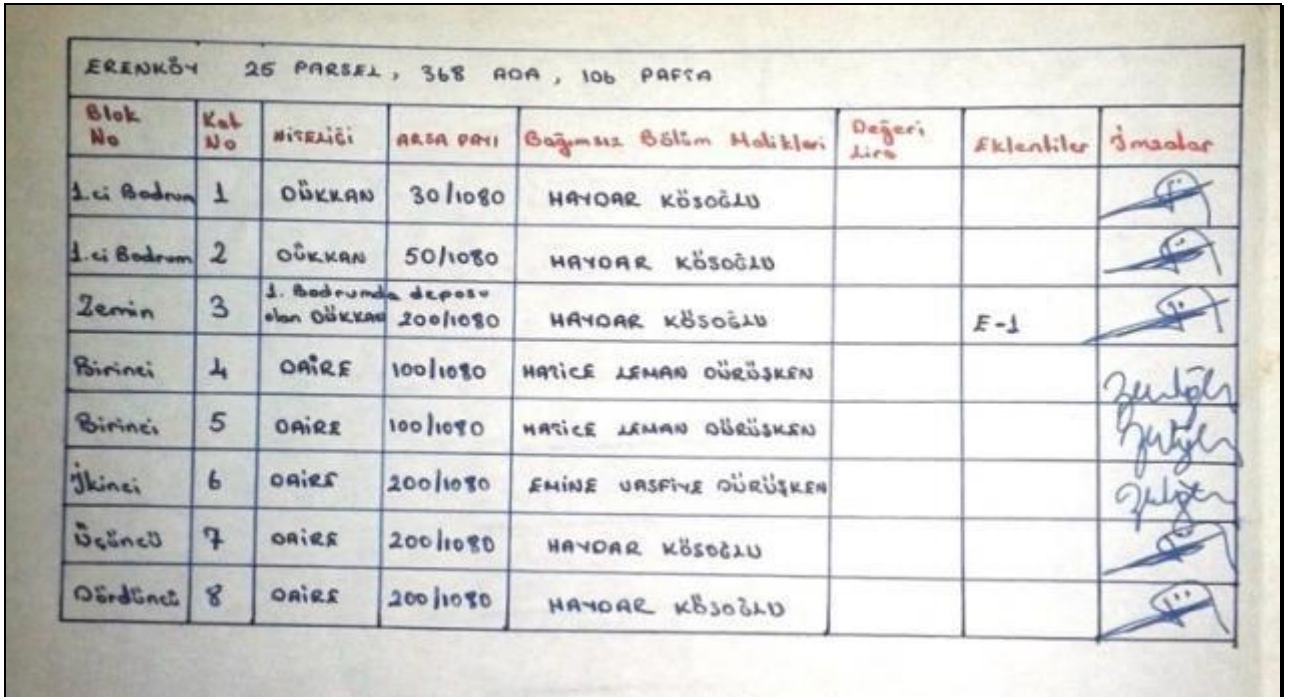 ERENKÖY 25 PARSEL, 368 ADA, 106 PAFTA
Blok No Kat No NİTELİĞİ ARSA PAYI Bağımsız Bölüm Malikleri Değeri Lira Eklentiler İmzalar
1.ci Bodrum 1 DÜKKAN 30/1080 HAYDAR KÖSOĞLU
1.ci Bodrum 2 DÜKKAN 50/1080 HAYDAR KÖSOĞLU
Zemin 3 1. Bodrumda deposu olan DÜKKAN 200/1080 HAYDAR KÖSOĞLU E-1
Birinci 4 DAİRE 100/1080 HATİCE LEMAN DÜRÜŞKEN
Birinci 5 DAİRE 100/1080 HATİCE LEMAN DÜRÜŞKEN
İkinci 6 DAİRE 200/1080 EMİNE VASFİYE DÜRÜŞKEN
Üçüncü 7 DAİRE 200/1080 HAYDAR KÖSOĞLU
Dördüncü 8 DAİRE 200/1080 HAYDAR KÖSOĞLU